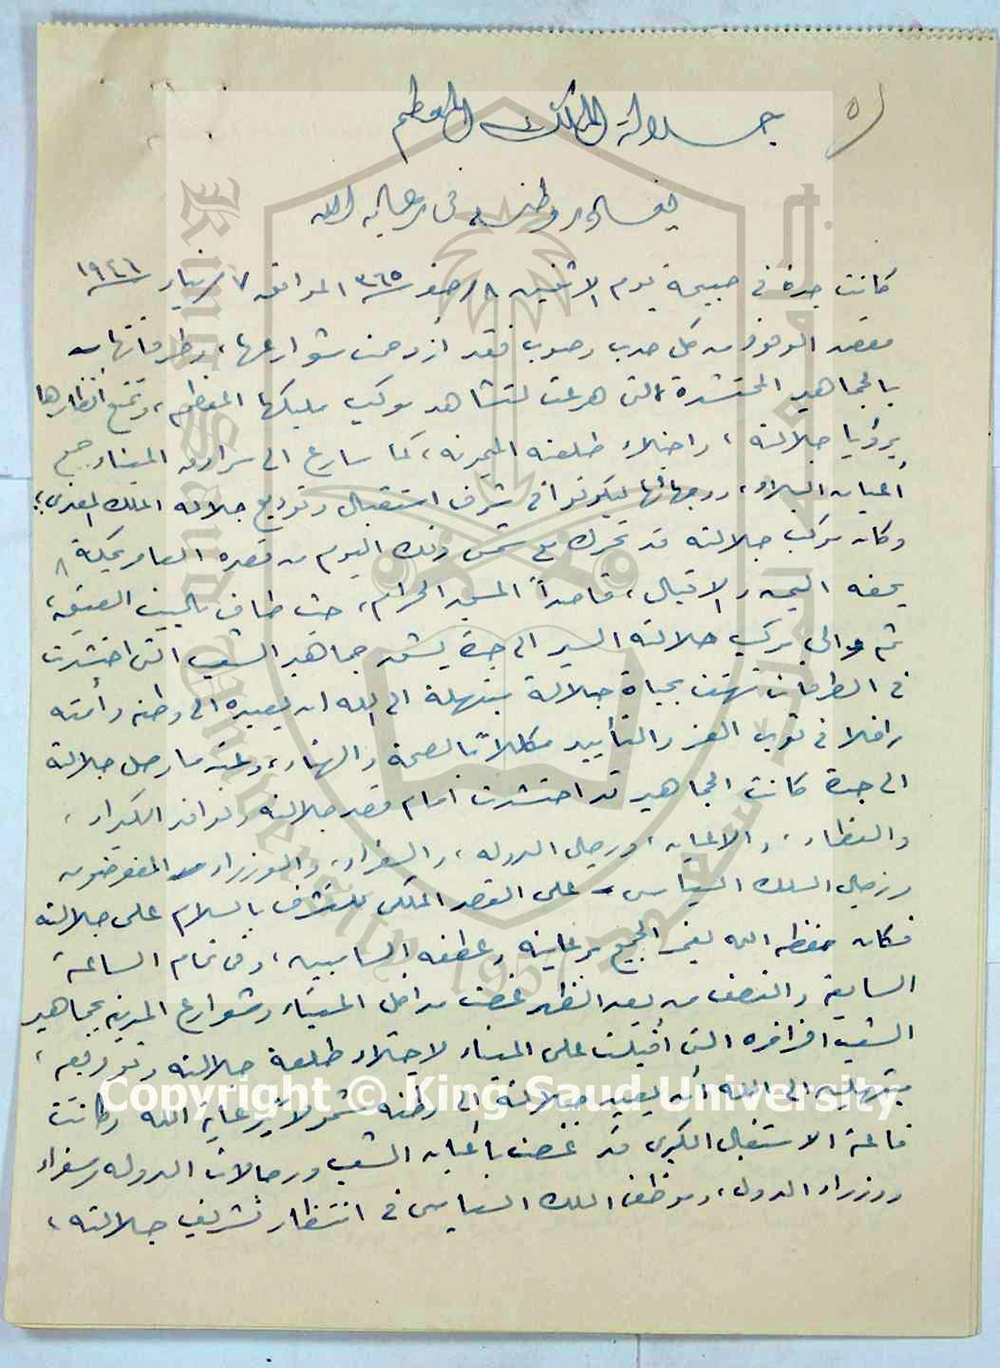 ٥١
جلالة الملك المعظم
يغادر وطنه في رعاية الله
كانت جدة في صبيحة يوم الاثنين ٨ صفر ٣٦٥ الموافق ٧ يناير ١٩٤٦
مقصد الوفود من كل حدب وصوب فقد ازدحمت شوارعها، وطرقاتها
بالجماهير المحتشدة التى هرعت لتشاهد موكب مليكها المعظم، وتمتع أنظارها
برؤيا جلالته، واجتلاء طلعته الميمونة، كما سارع الى سرادق الميناء جميع
أعيان البلاد، ووجهائها ليكونوا في شرف استقبال وتوديع جلالة الملك المفدى؛
وكان موكب جلالته قد تحرك مع شمس ذلك اليوم من قصره العامر بمكة
يحفه اليمن والاقبال، قاصداً المسجد الحرام، حيث طاف بالبيت العتيق،
ثم والى موكب جلالته السير الى جدة جماهير الشعب التى احتشدت
في الطرقات تهتف بحياة جلالة مبتهلة الى الله ان يعيده الى وطنه وأمته
رافلا في ثوب العز والتأييد مكللاً بالصحة والهناء، وعندما وصل جلالة
الى جدة كانت الجماهير قد احتشدت أمام قصر جلالته وتوافد الكبراء،
والعظماء، والاعيان، ورجال الدوله، والسفراء، والوزراء المفوضون
ورجال السلك السياسى على القصر الملكى للتشرف بالسلام على جلالته
فكان حفظه الله يغمر الجميع برعايته وعطفه الساميين، وفى تمام الساعة
السابعة والنصف من بعد الظهر غصت مداخل الميناء وشوارع المدينة بجماهير
الشعب التى أقبلت على الميناء لاجتلاء طلعة جلالته وتوديعه،
مبتهلين الى الله أن يعيد جلالته الى وطنه مشمولاً برعاية الله وكانت
قاعة الاستقبال الكبرى قد غصت بأعيان الشعب ورجالات الدوله وسفراء
ووزراء الدول، وموظفى السلك السياسى في انتظار تشريف جلالته،
جامعة الملك سعود
King Saud University
1957
Copyright © King Saud University